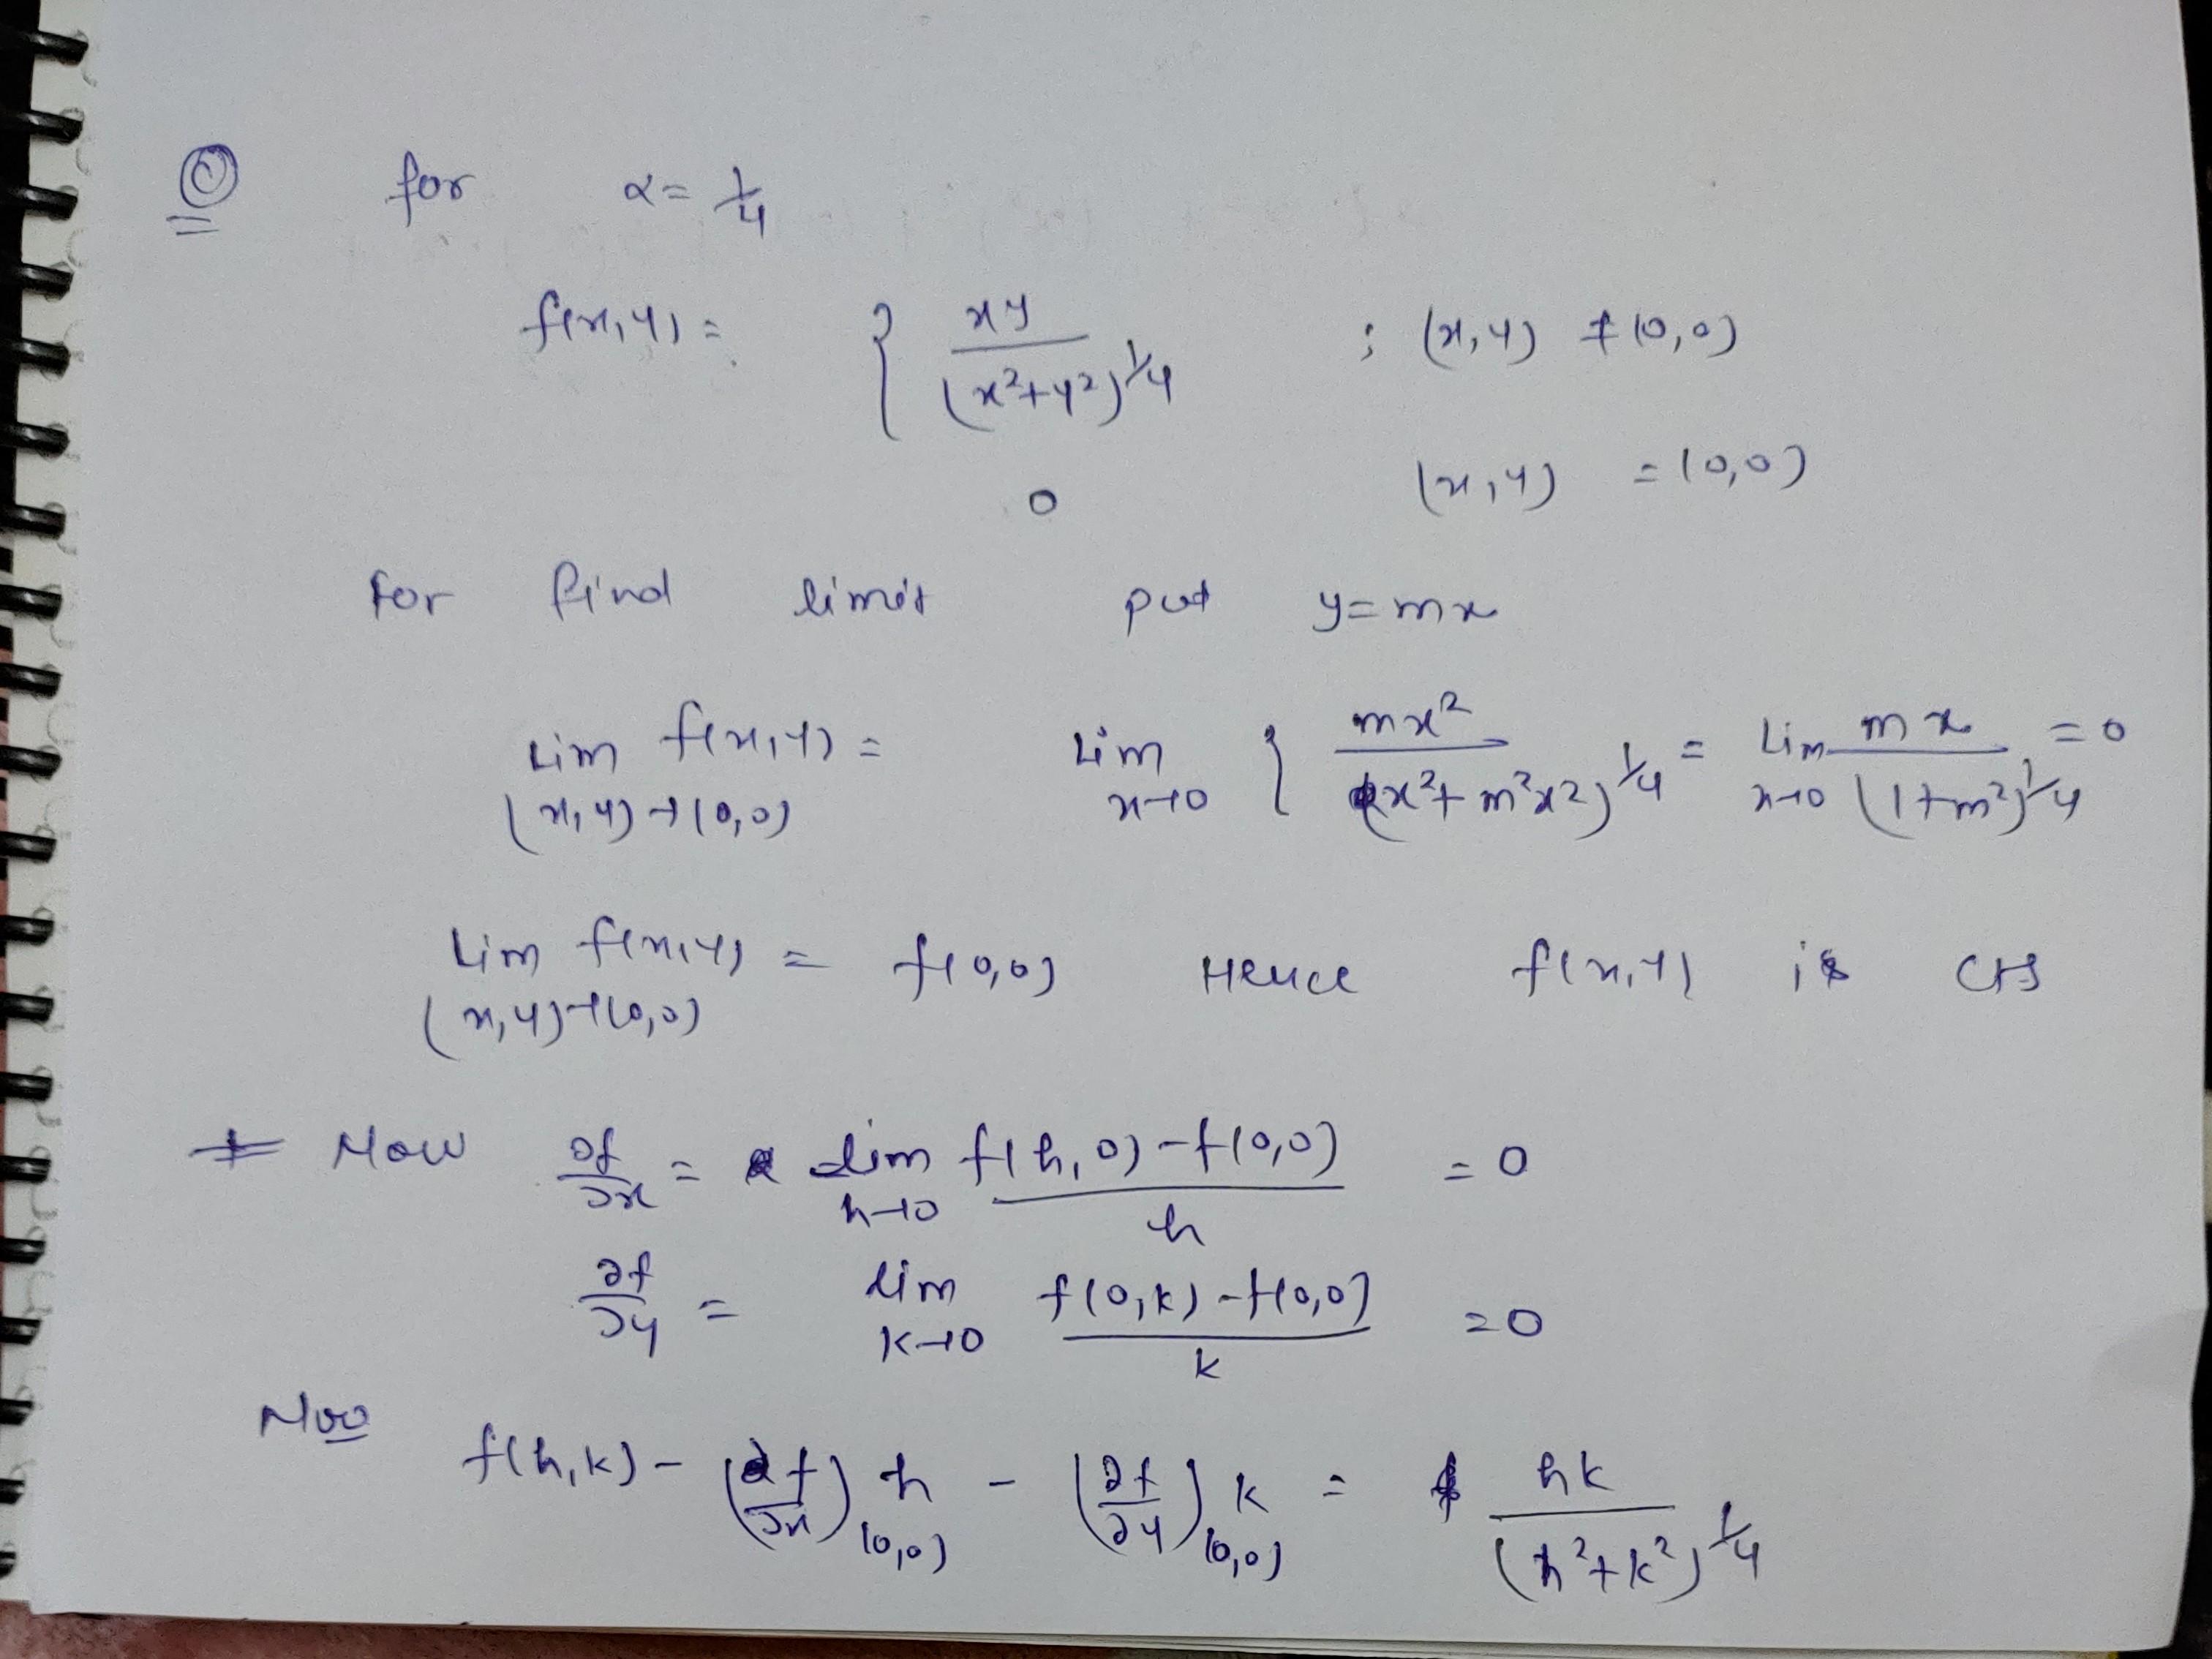 ① for α = 1/4
f(x,y) = { xy / (x²+y²)^1/4 ; (x,y) ≠ (0,0)
0 (x,y) = (0,0)
for find limit put y=mx
Lim (x,y)→(0,0) f(x,y) = Lim x→0 { mx² / (x²+m²x²)^1/4 = Lim x→0 mx / (1+m²)^1/4 = 0
Lim (x,y)→(0,0) f(x,y) = f(0,0) Hence f(x,y) is cts
Now ∂f/∂x = lim h→0 f(h,0)-f(0,0) / h = 0
∂f/∂y = lim k→0 f(0,k)-f(0,0) / k = 0
f(h,k) - (∂f/∂x)(0,0) h - (∂f/∂y)(0,0) k = hk / (h²+k²)^1/4